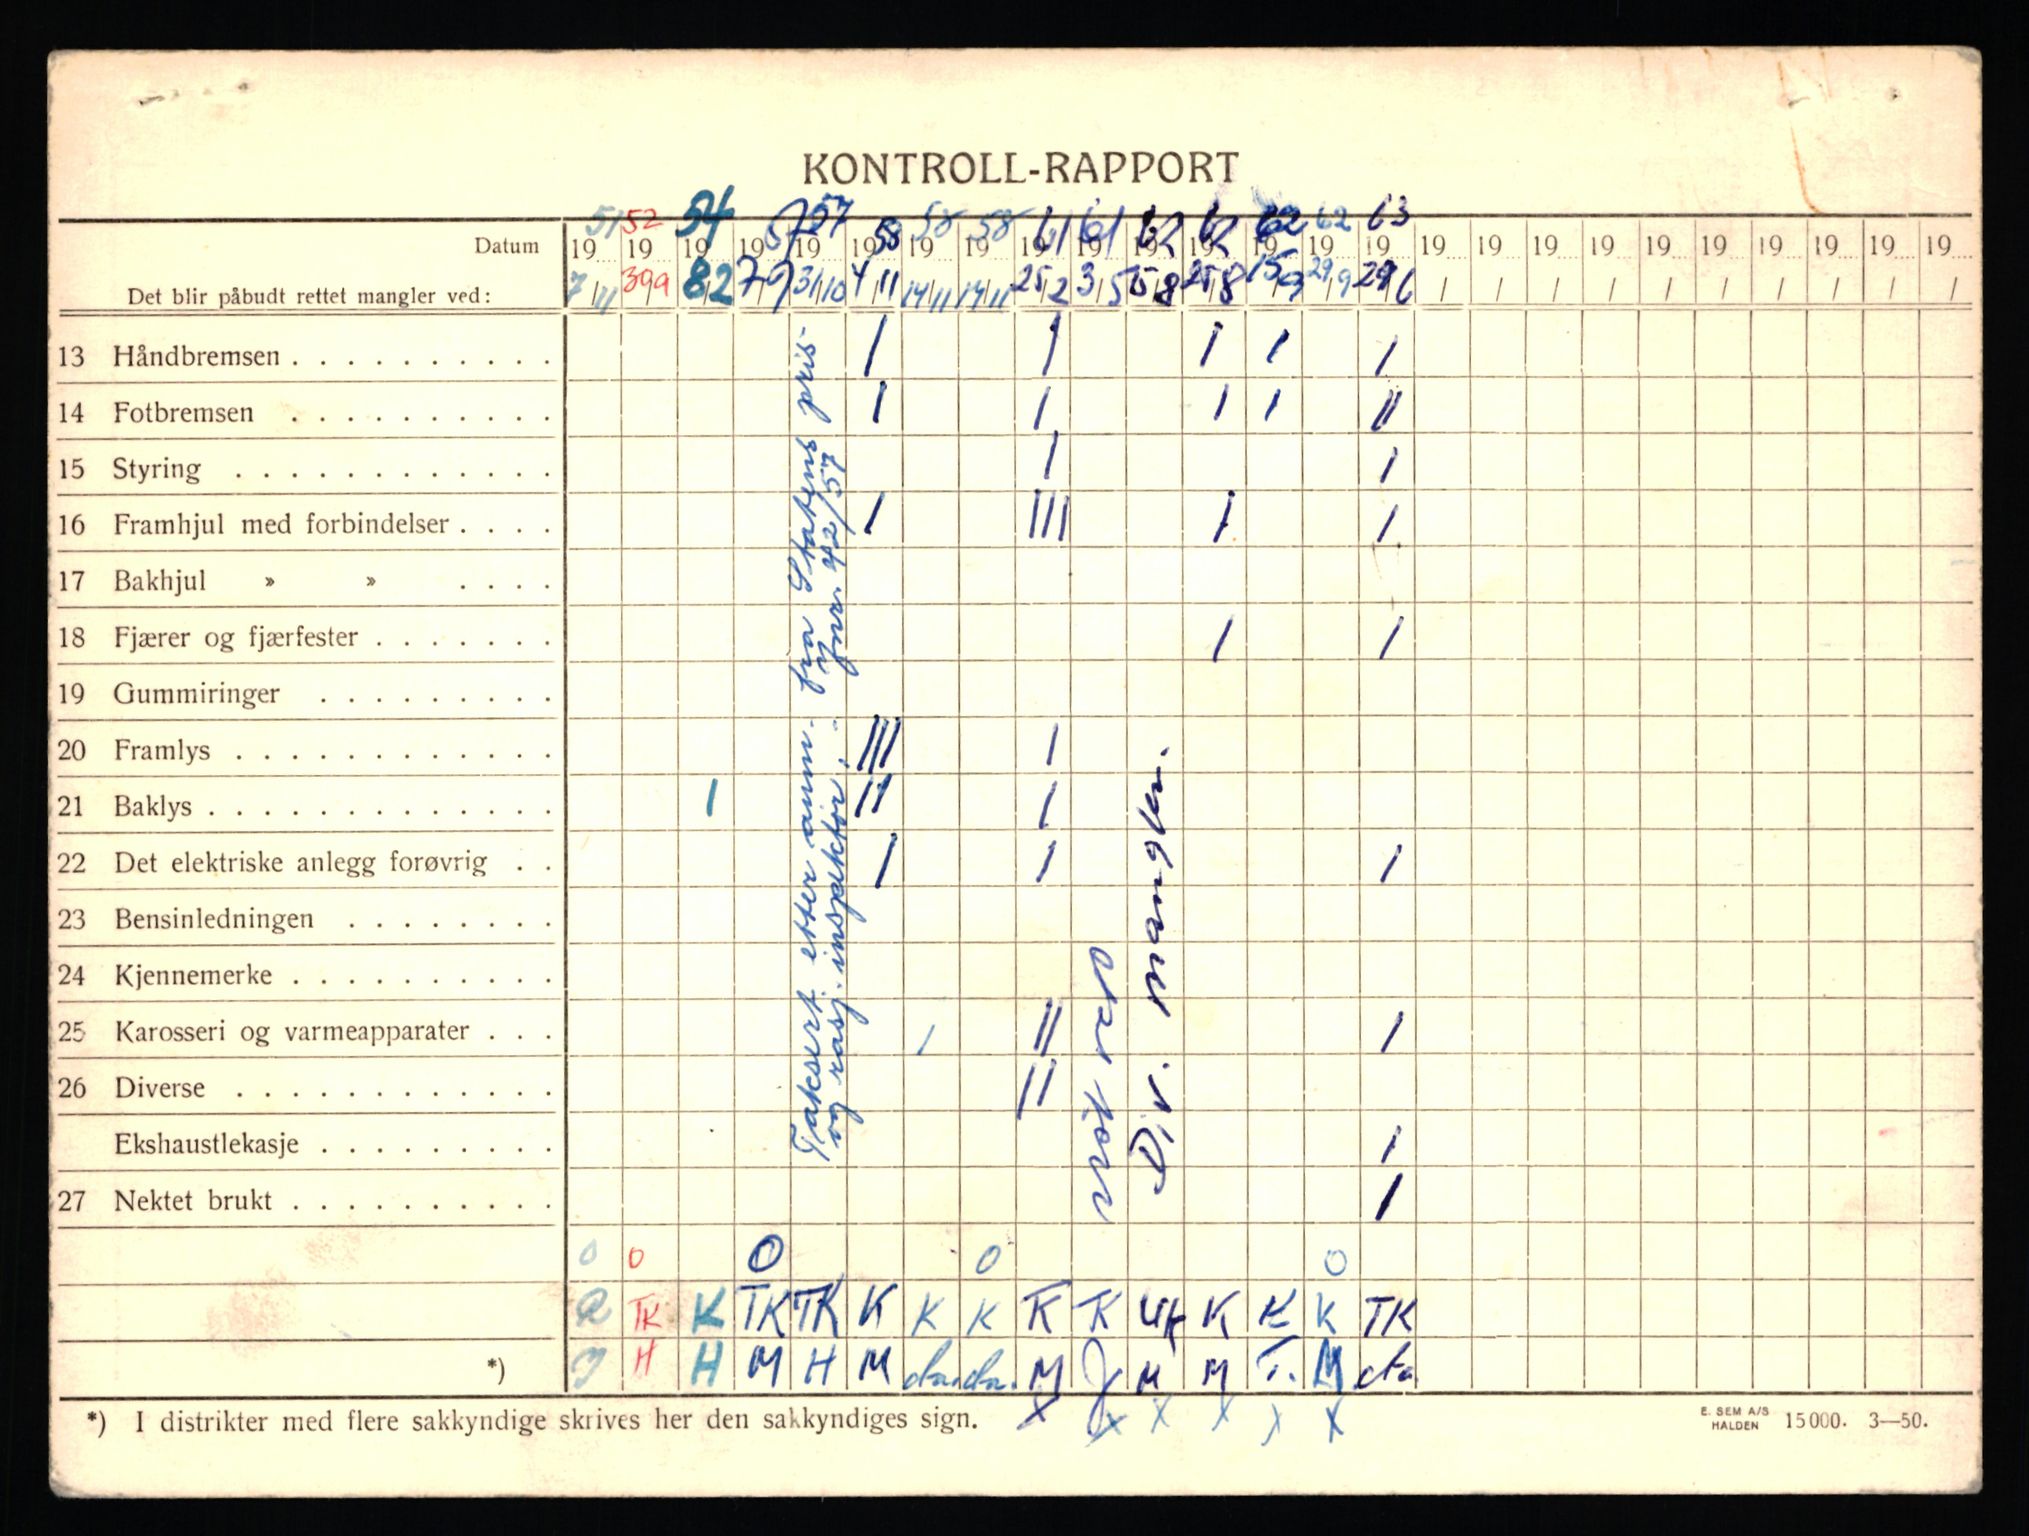 KONTROLL-RAPPORT
51 52 54 57 57 58 58 58 61 61 62 62 62 62 63
Datum 19 19 19 19 19 19 19 19 19 19 19 19 19 19 19 19 19 19 19 19 19 19 19 19 19
Det blir påbudt rettet mangler ved: 7/11 30/9 8/2 7/9 31/10 4/11 14/11 14/11 25/2 3/5 25/8 15/9 29/9 29/6 / / / / / / / / / /
13 Håndbremsen . . . . . . . . . . / / / / /
14 Fotbremsen . . . . . . . . . . / / / / //
15 Styring . . . . . . . . . . . . / /
16 Framhjul med forbindelser . . . . / /// / /
17 Bakhjul » » . . . .
18 Fjærer og fjærfester . . . . . . . / /
19 Gummiringer . . . . . . . . .
20 Framlys . . . . . . . . . . . . /// /
21 Baklys . . . . . . . . . . . . . / // /
22 Det elektriske anlegg forøvrig . . / / /
23 Bensinledningen . . . . . . . .
24 Kjennemerke . . . . . . . . . .
25 Karosseri og varmeapparater . . . / // /
26 Diverse . . . . . . . . . . . . //
Ekshaustlekasje . . . . . . . . . /
27 Nektet brukt . . . . . . . . . . /
Taksert etter anm. fra Statens pris
og rasj. inspektør, Jnr. 42/57
Div. mangler.
O O O O O
TK K TK TK K K K K K UK K K K TK
*) H H M H M da. da. M J M M T. M da
X X X X X X
*) I distrikter med flere sakkyndige skrives her den sakkyndiges sign.
E. SEM A/S
HALDEN 15000. 3—50.